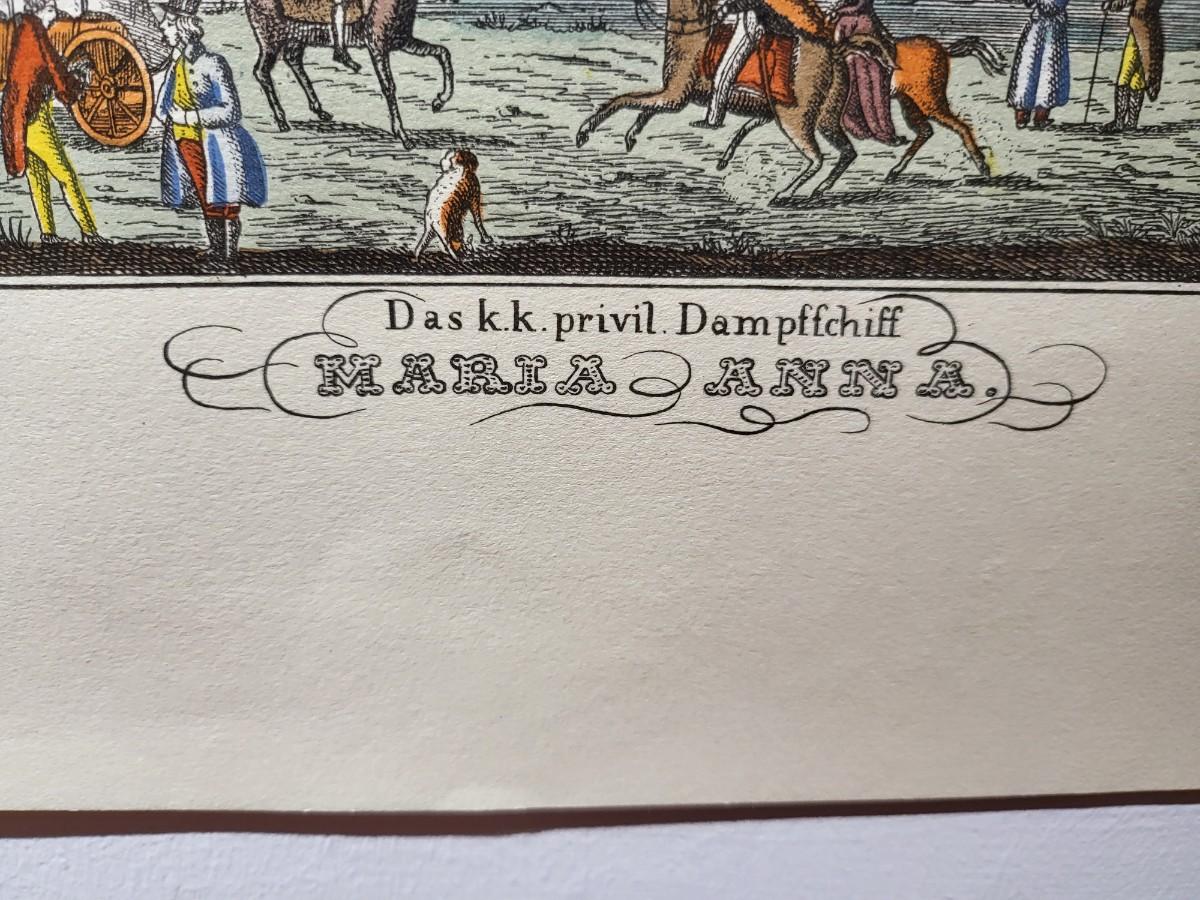 Das k.k. privil. Dampfſchiff
MARIA ANNA.